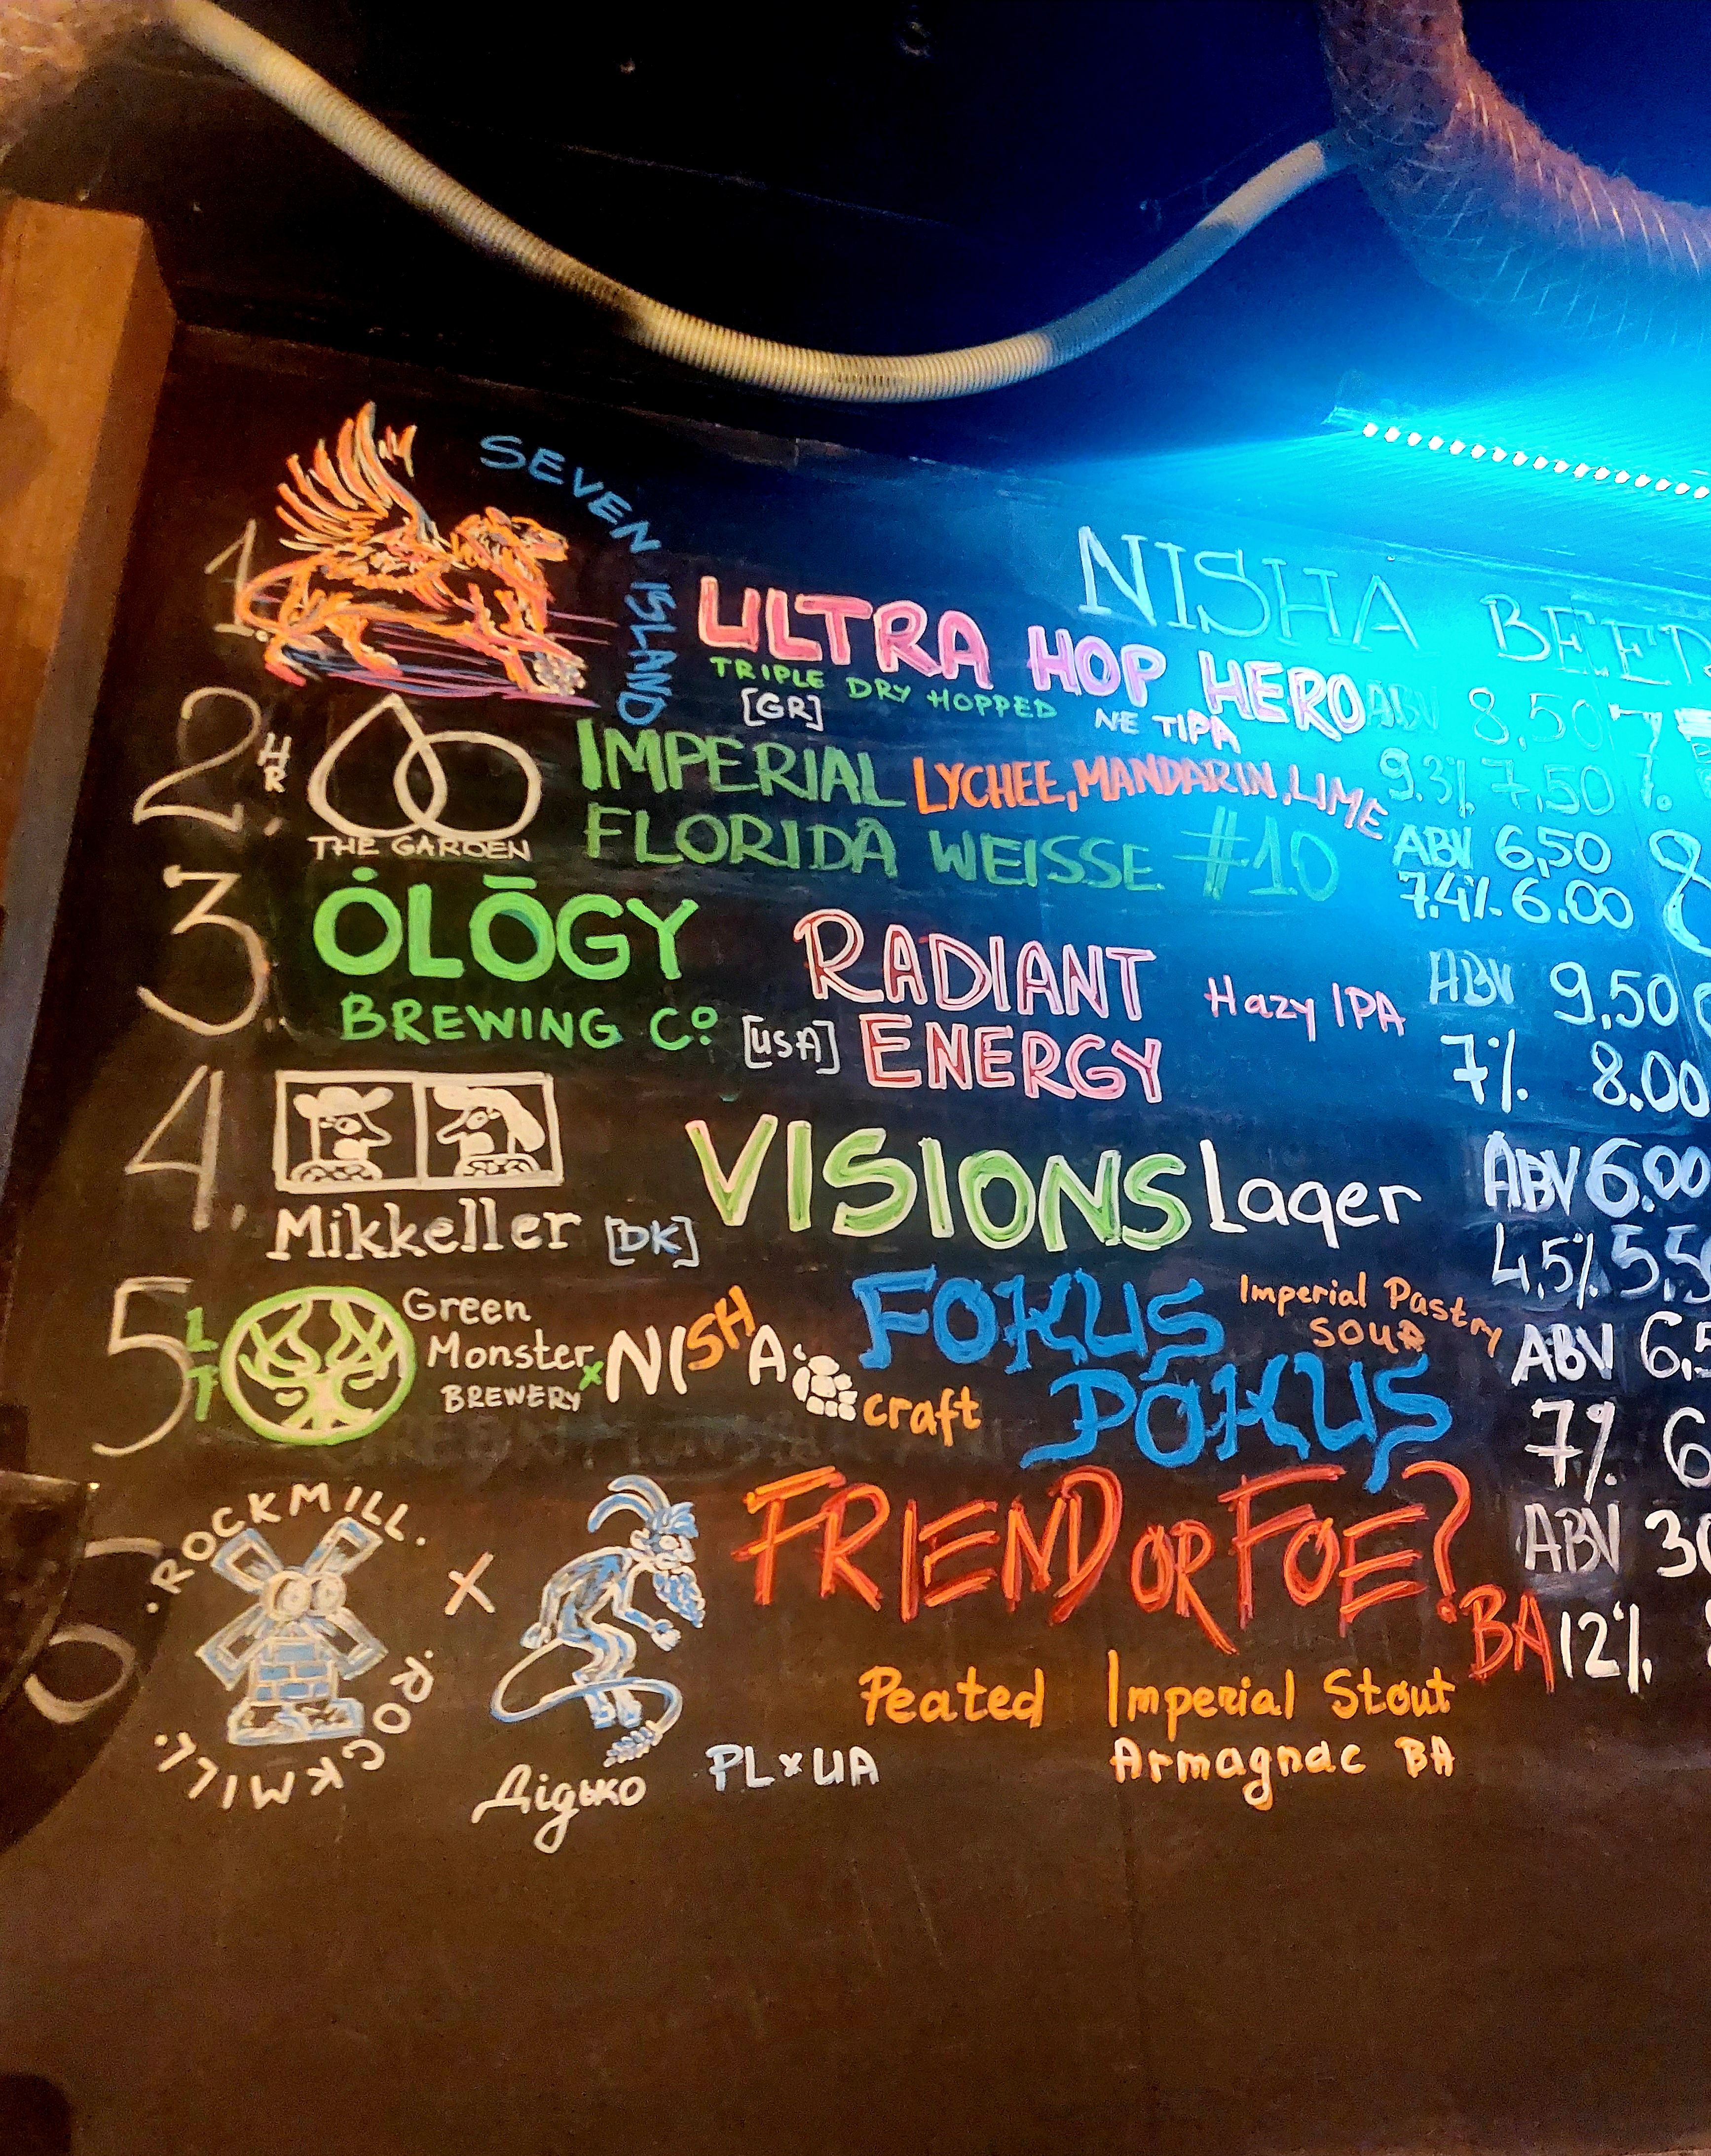 NISHA BEER
1. SEVEN ISLAND ULTRA HOP HERO ABV 8,50
TRIPLE DRY HOPPED
[GR] NE TIPA 9.3% 7,50
2. HR THE GARDEN IMPERIAL LYCHEE, MANDARIN, LIME ABV 6,50
FLORIDA WEISSE #10 7.4% 6.00
3. ȮLŌGY RADIANT Hazy IPA ABV 9,50
BREWING Cº [USA] ENERGY 7% 8.00
4. Mikkeller [DK] VISIONS Lager ABV 6.00
4,5%
5 LT Green Monster BREWERY x NISHA craft
FOKUS POKUS Imperial Pastry SOUR ABV
7%
6 .ROCKMILL. ROCKMILL. x Дідько FRIEND OR FOE? BA ABV
12%
Peated Imperial Stout
PL x UA Armagnac BA